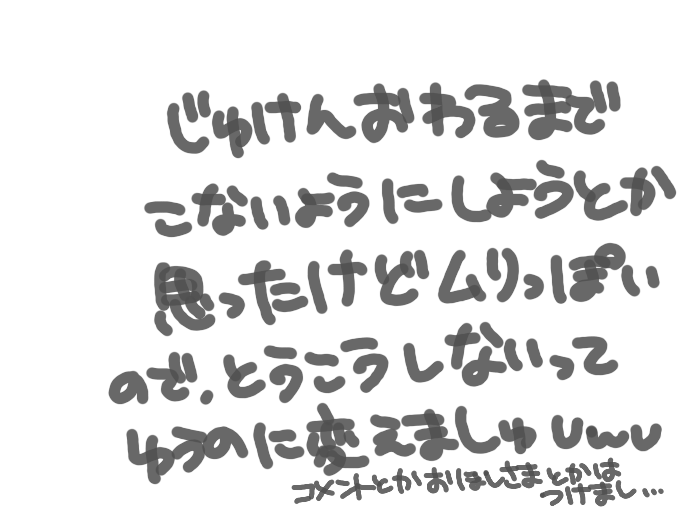 じゅけんおわるまで
こないようにしようとか
思ったけどムリっぽい
ので、とうこうしないって
ゆうのに変えましゅ UwU
コメントとかおほしさまとかは
つけまし…